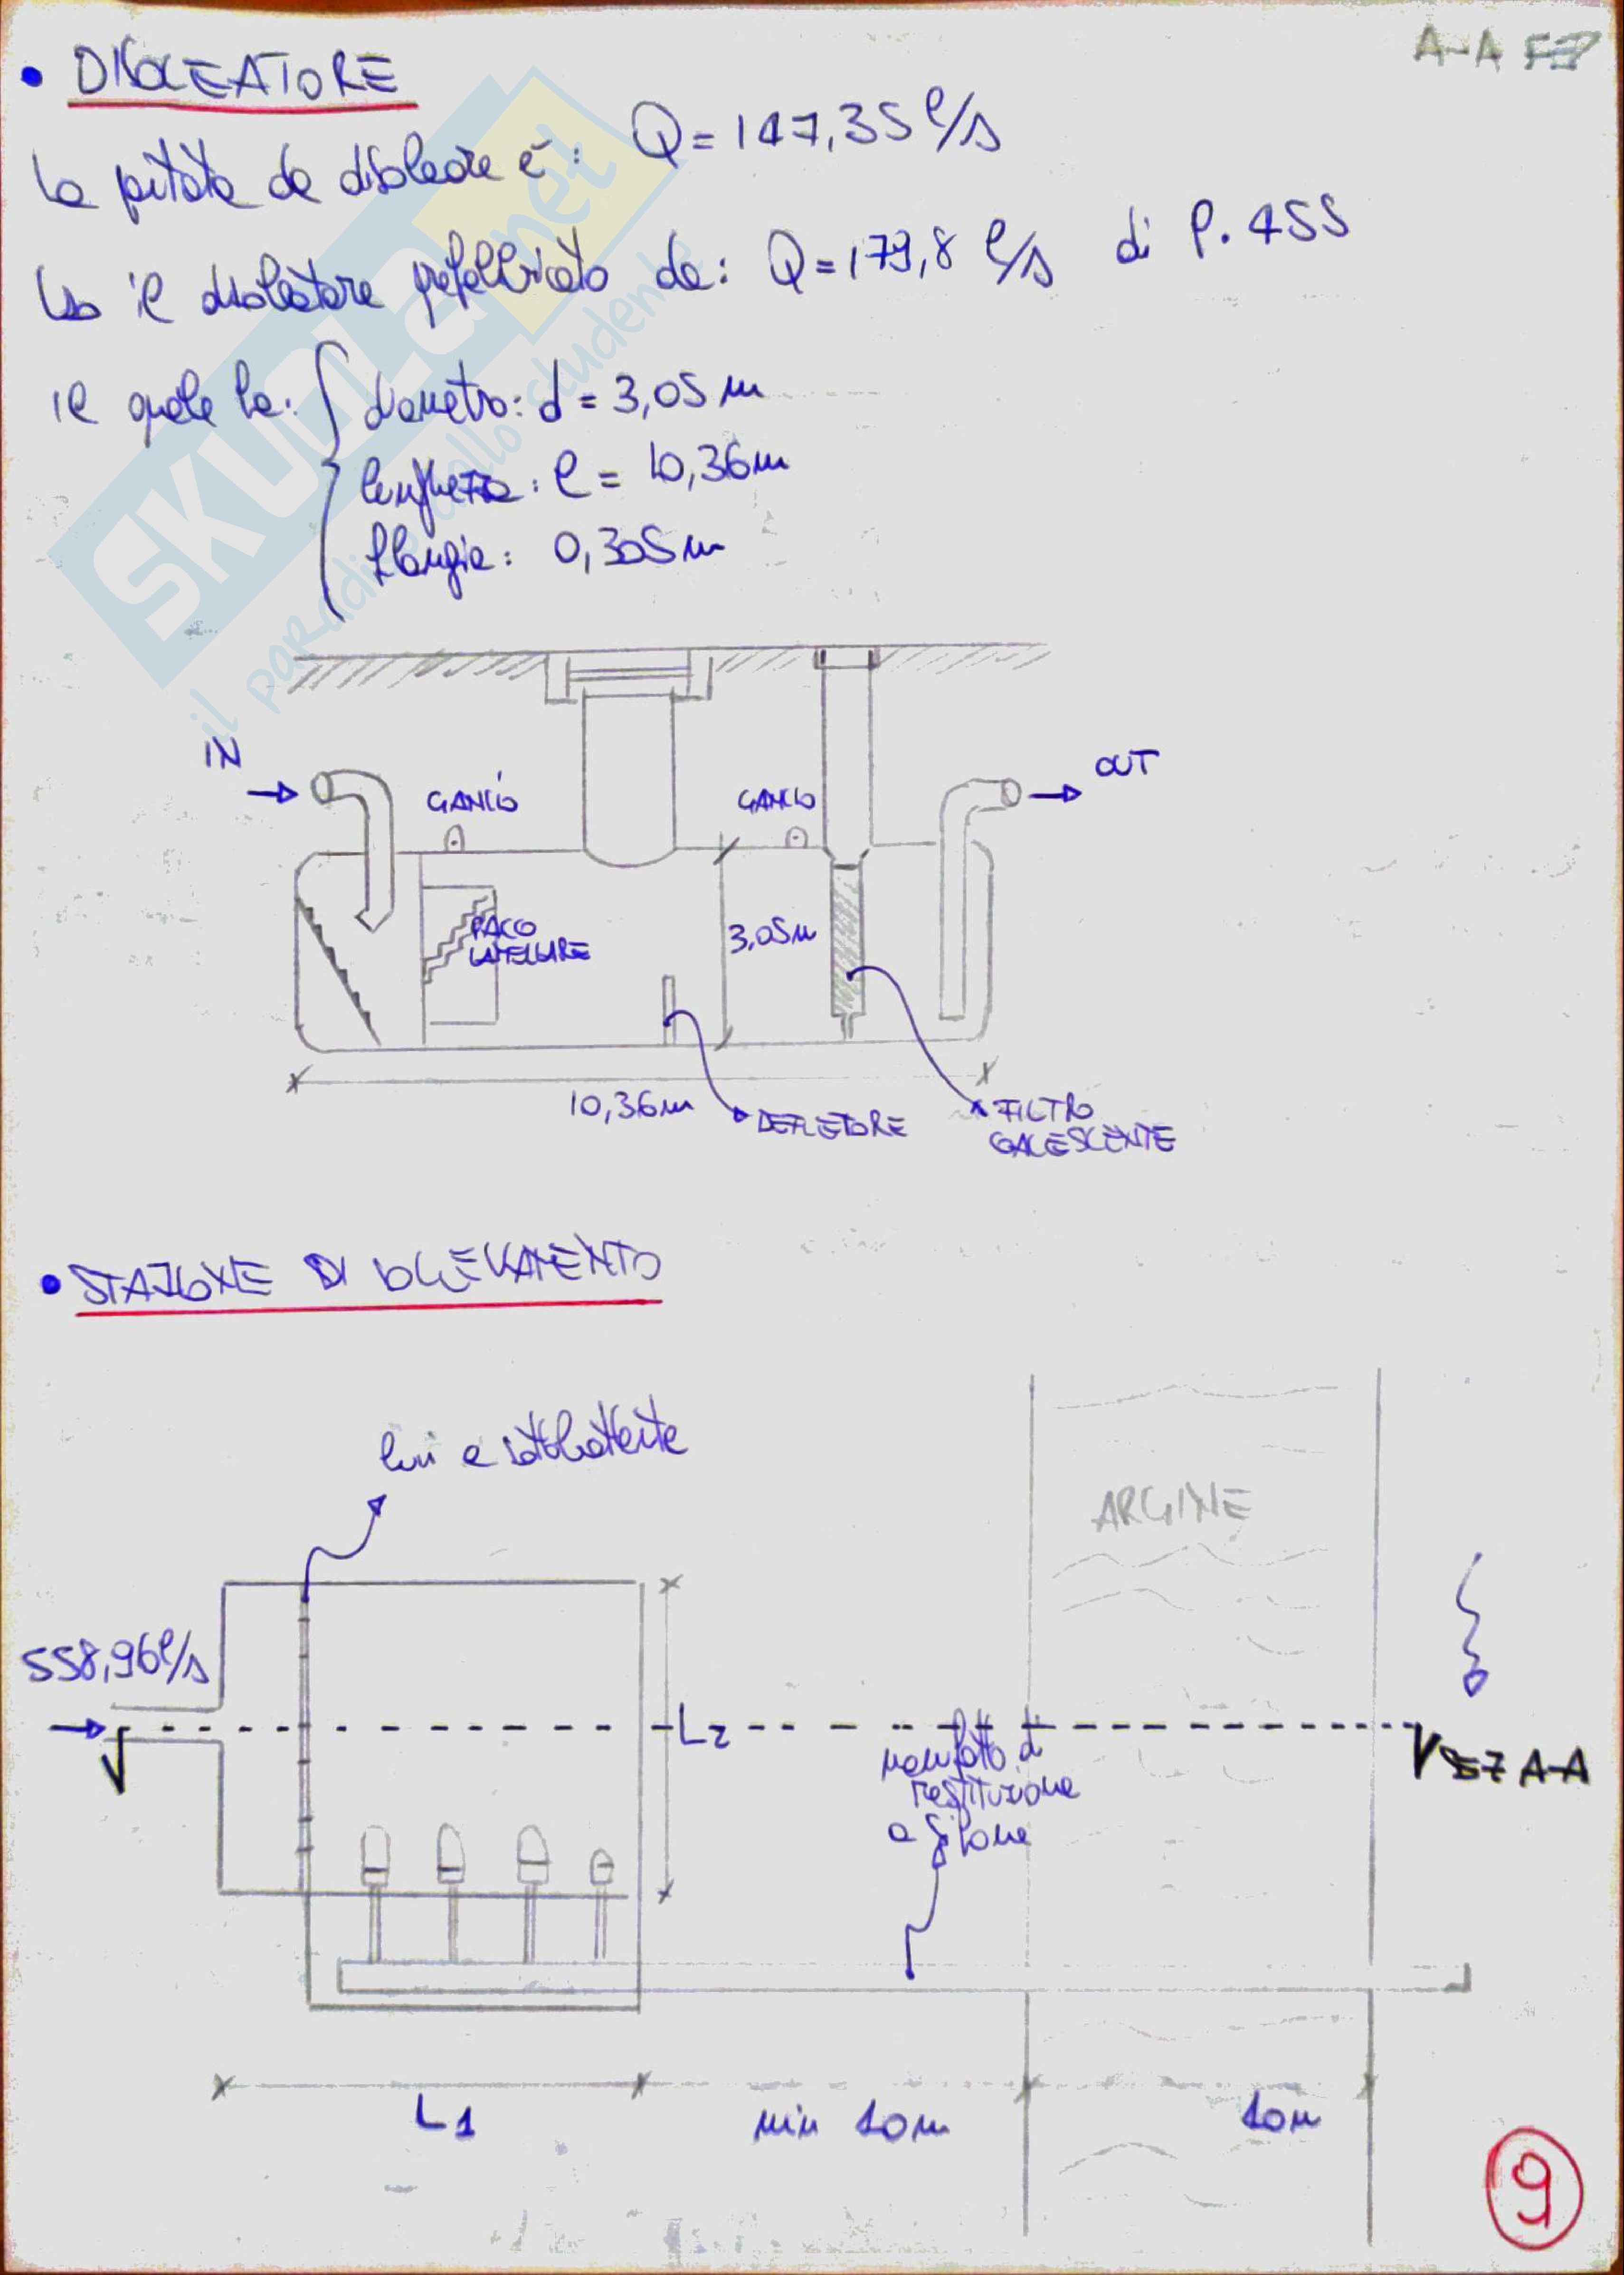 A-A 57
• DISOLEATORE
La portata da disoleare è: Q = 147,35 l/s
Uso il disoleatore prefabbricato da: Q = 179,8 l/s di p. 455
il quale ha: diametro: d = 3,05 m
lunghezza: l = 10,36 m
flangia: 0,305 m
SKUOLA.net
il paradiso dello studente
IN
OUT
GANCIO
GANCIO
PACCO
LAMELLARE
3,05 m
10,36 m
DEFLETTORE
FILTRO
COALESCENTE
• STAZIONE DI SOLLEVAMENTO
luci a sottobattente
ARGINE
558,96 l/s
L2
manufatto di
restituzione
a fiume
57 A-A
L1
min 10 m
10 m
9